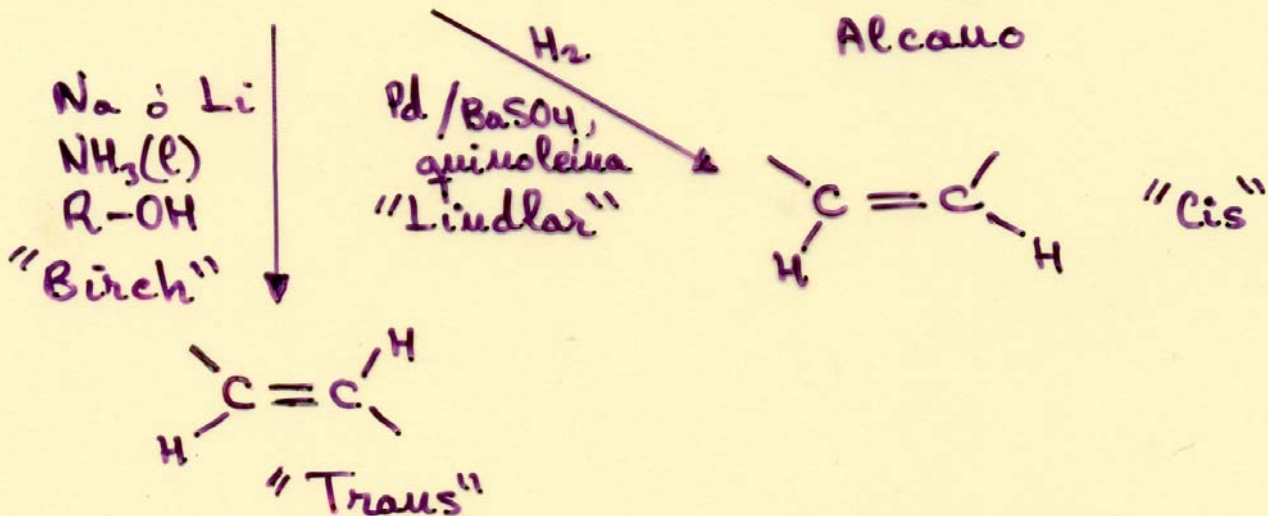 H₂
Alcano
Na ó Li
NH₃(l)
R-OH
"Birch"
Pd/BaSO₄,
quinoleina
"Lindlar"
C = C
H
H
"Cis"
H
C = C
H
"Trans"